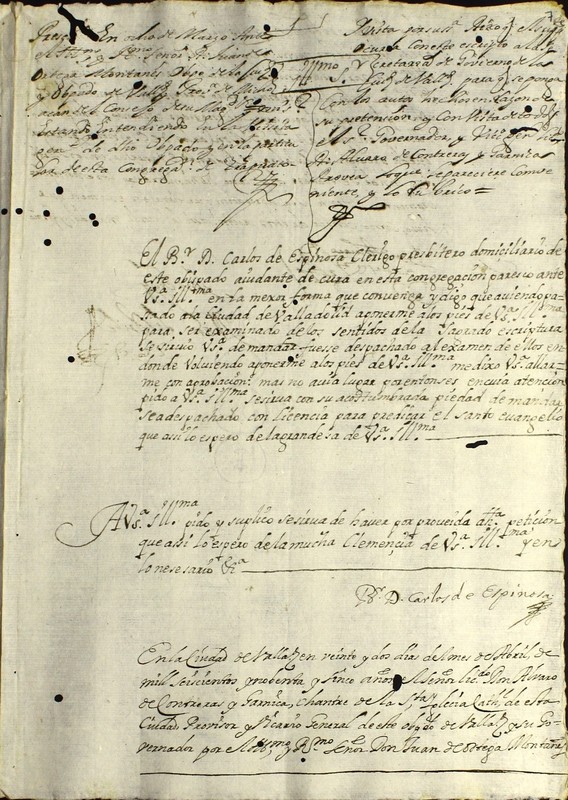 En ocho de Marzo
Ortega Montañes Obpo de
y Obpado de Valld
del Consejo de su Magd
estando entendiendo en la Vicita
genl de dho Obpado y en la
de esta Congregn
Vista por su Sa
ocurra Conese escripto a la
Secretaria de Govierno de la
Ciud de Vallid para q se ponga
Con los autos hechos en razon de
su pretencion, y Con Vista de todo
el Sr Governador y
D. Alvaro de Contreras y Garnica
Provea lo que le pareciere Conve
niente, y lo rubrico =
Yllmo Sr
El Br D. Carlos de Espinosa Clerigo presbitero domiciliario de
este obispado aiudante de cura en esta congregacion paresco ante
Vsa Illma en la mexor forma que convenga y digo que aviendo pa
sado a la ciudad de Valladolid a ponerme a los pies de Vsa Illma
para ser examinado de los sentidos de la sagrado escriptura
se sirvio Vsa de mandar fuesse despachado al examen de ellos en
donde volviendo a ponerme a los pies de Vsa Illma me dixo Vsa allar
me con aprobacion mas no avia lugar por entonses en cuia atencion
pido a Vsa Illma se sirva con su acostumbrada piedad de mandar
sea despachado con licencia para predicar el santo evangelio
que assi lo espero de la grandesa de Vsa Illma
A Vsa Illma pido y suplico se sirva de haver por proveida petision
que assi lo espero de la mucha Clemencia de Vsa Illma y en
lo nesesario &a
Br D. Carlos de Espinosa
En la Ciudad de Vallad en veinte y dos dias del mes de Abril, de
mill seiscientos y noventa y sinco años el Señor licdo Don Alvaro
de Contreras y Garnica, Chantre de la Sta Yglecia Cathl de esta
Ciudad, Provisor y Vicario General de este obpdo de Vallad y su Go
vernador por el Yllmo y Rmo Señor Don Juan de Ortega Montañes